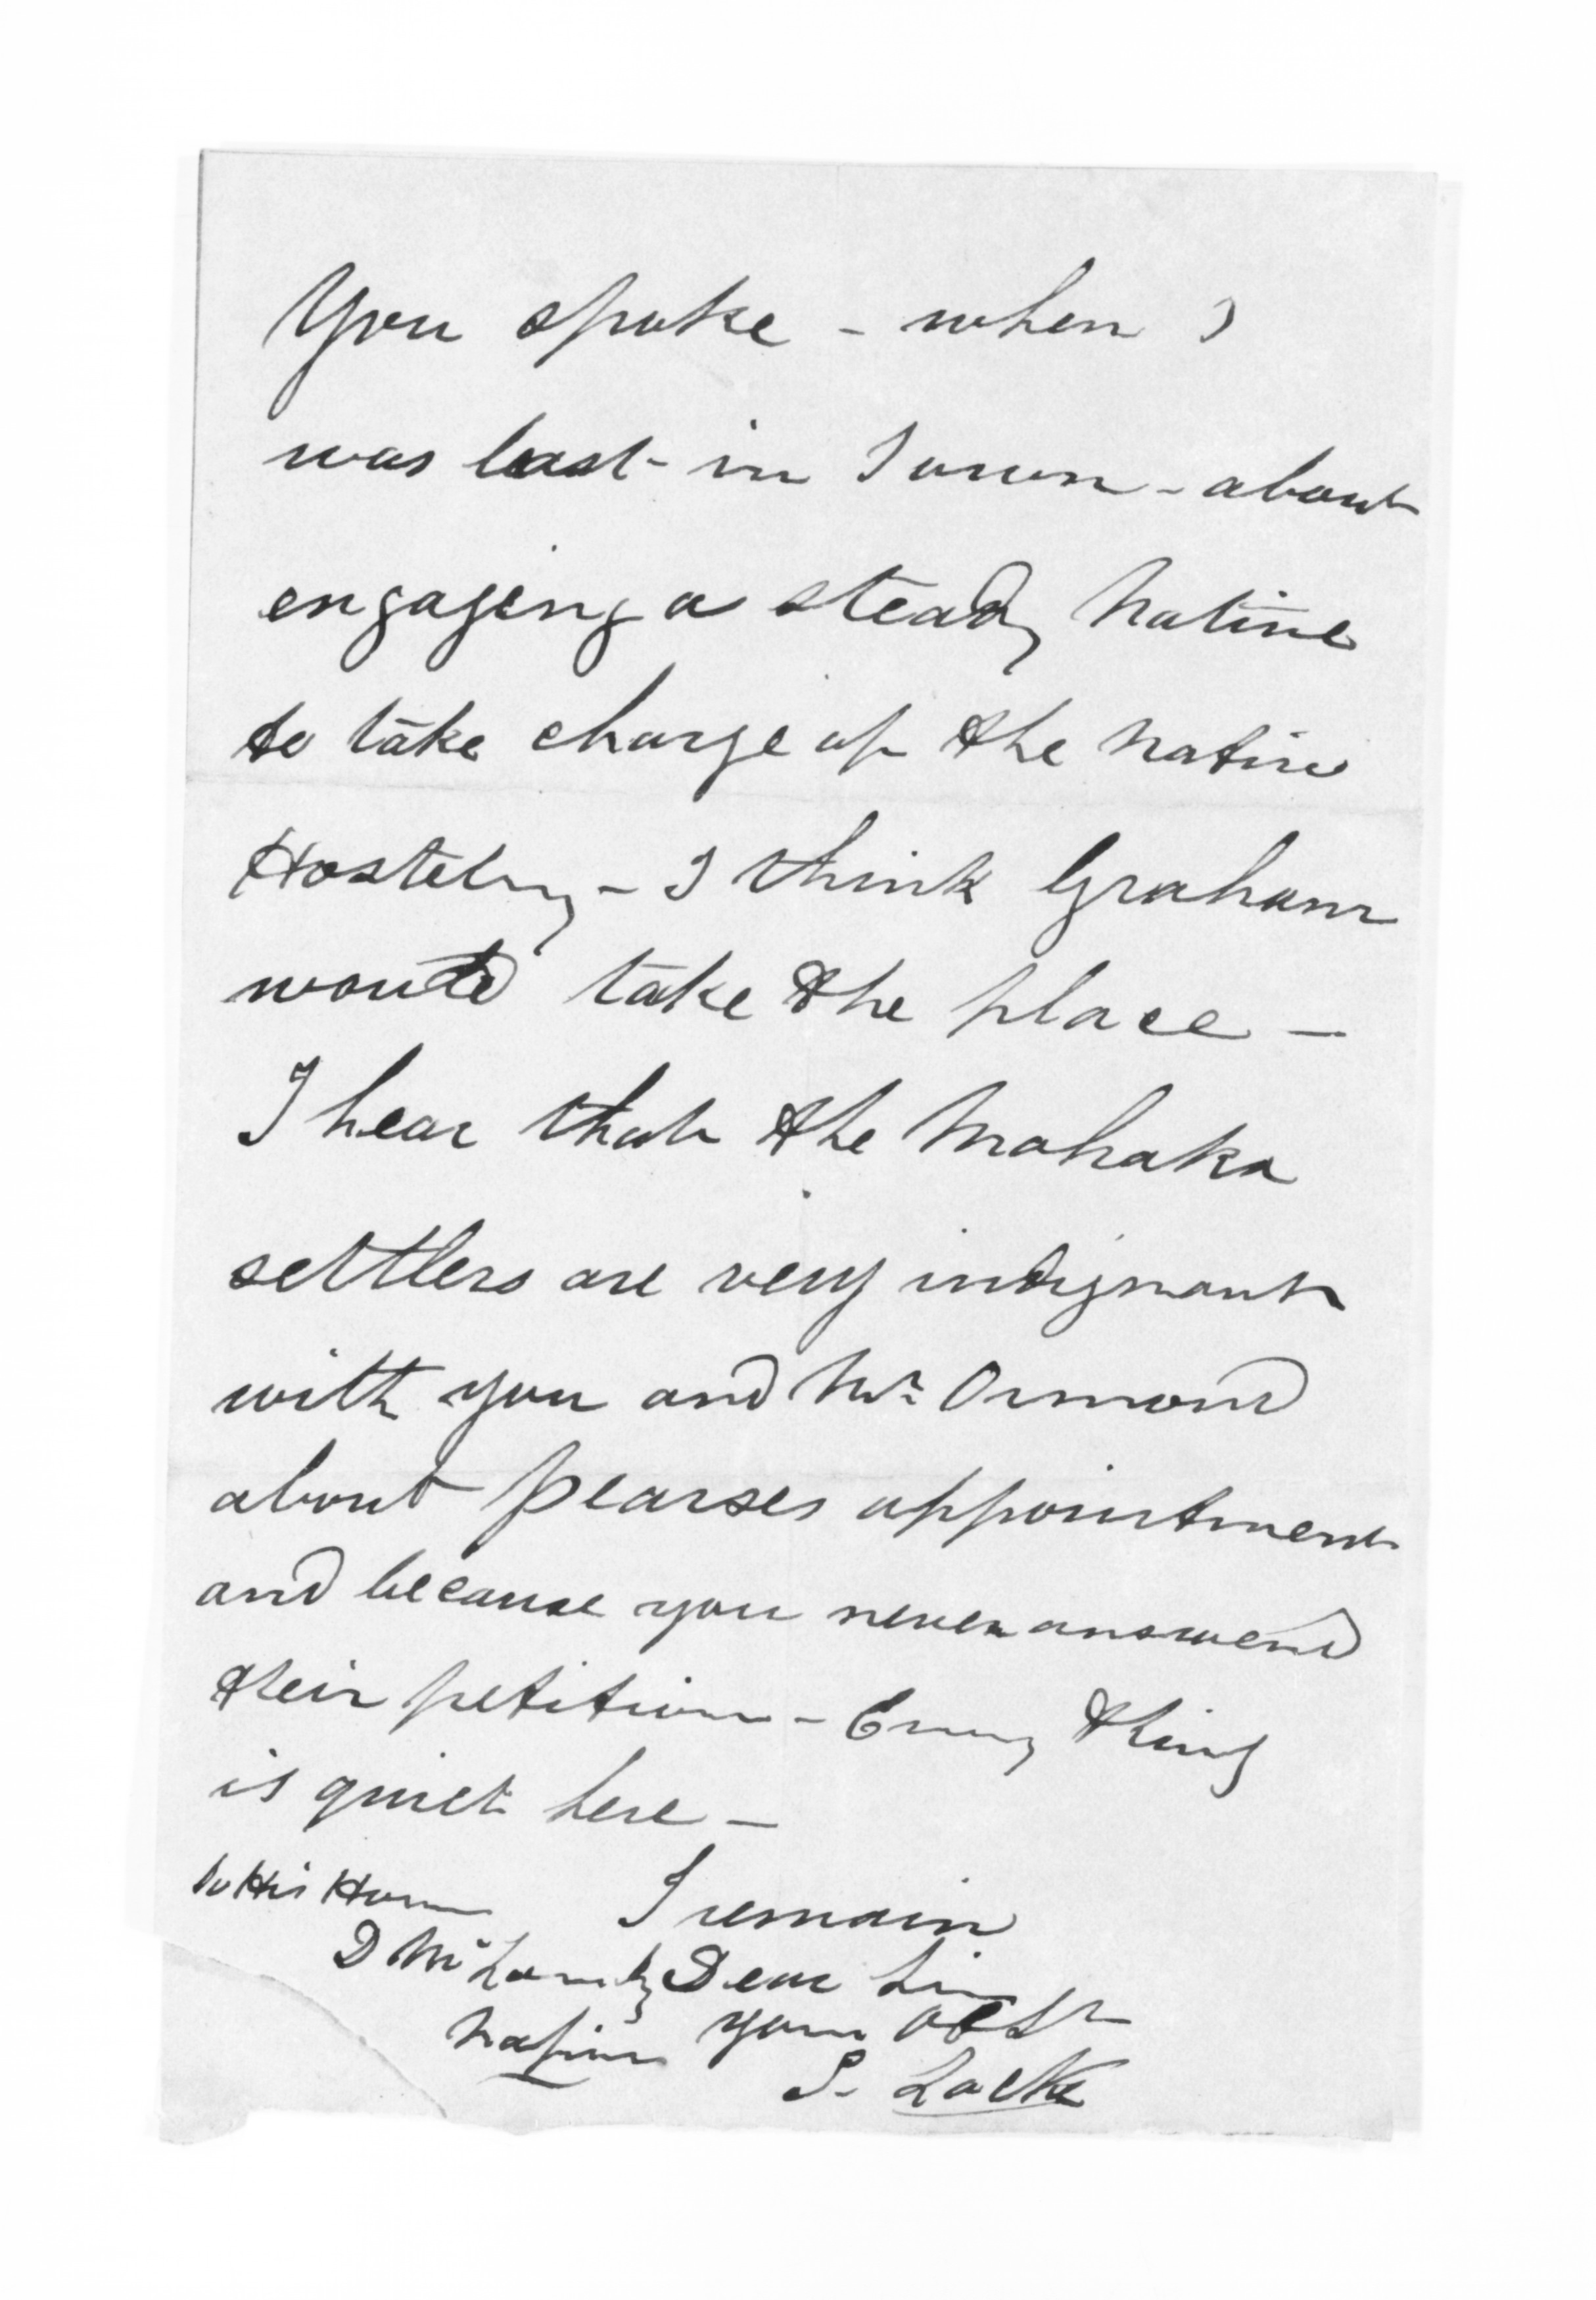 You spoke - when I
was last in Town - about
engaging a steady Native
to take charge of the Native
Hostelry - I think Graham
would take the place -
I hear that the Mohaka
settlers are very indignant
with you and Mr Ormond
about Pearses appointment
and because you never answered
their petition - Every thing
is quiet here -
I remain
Dear Sir
Your obt Sr
S. Locke
To His Honor
D McLean Esq
Napier